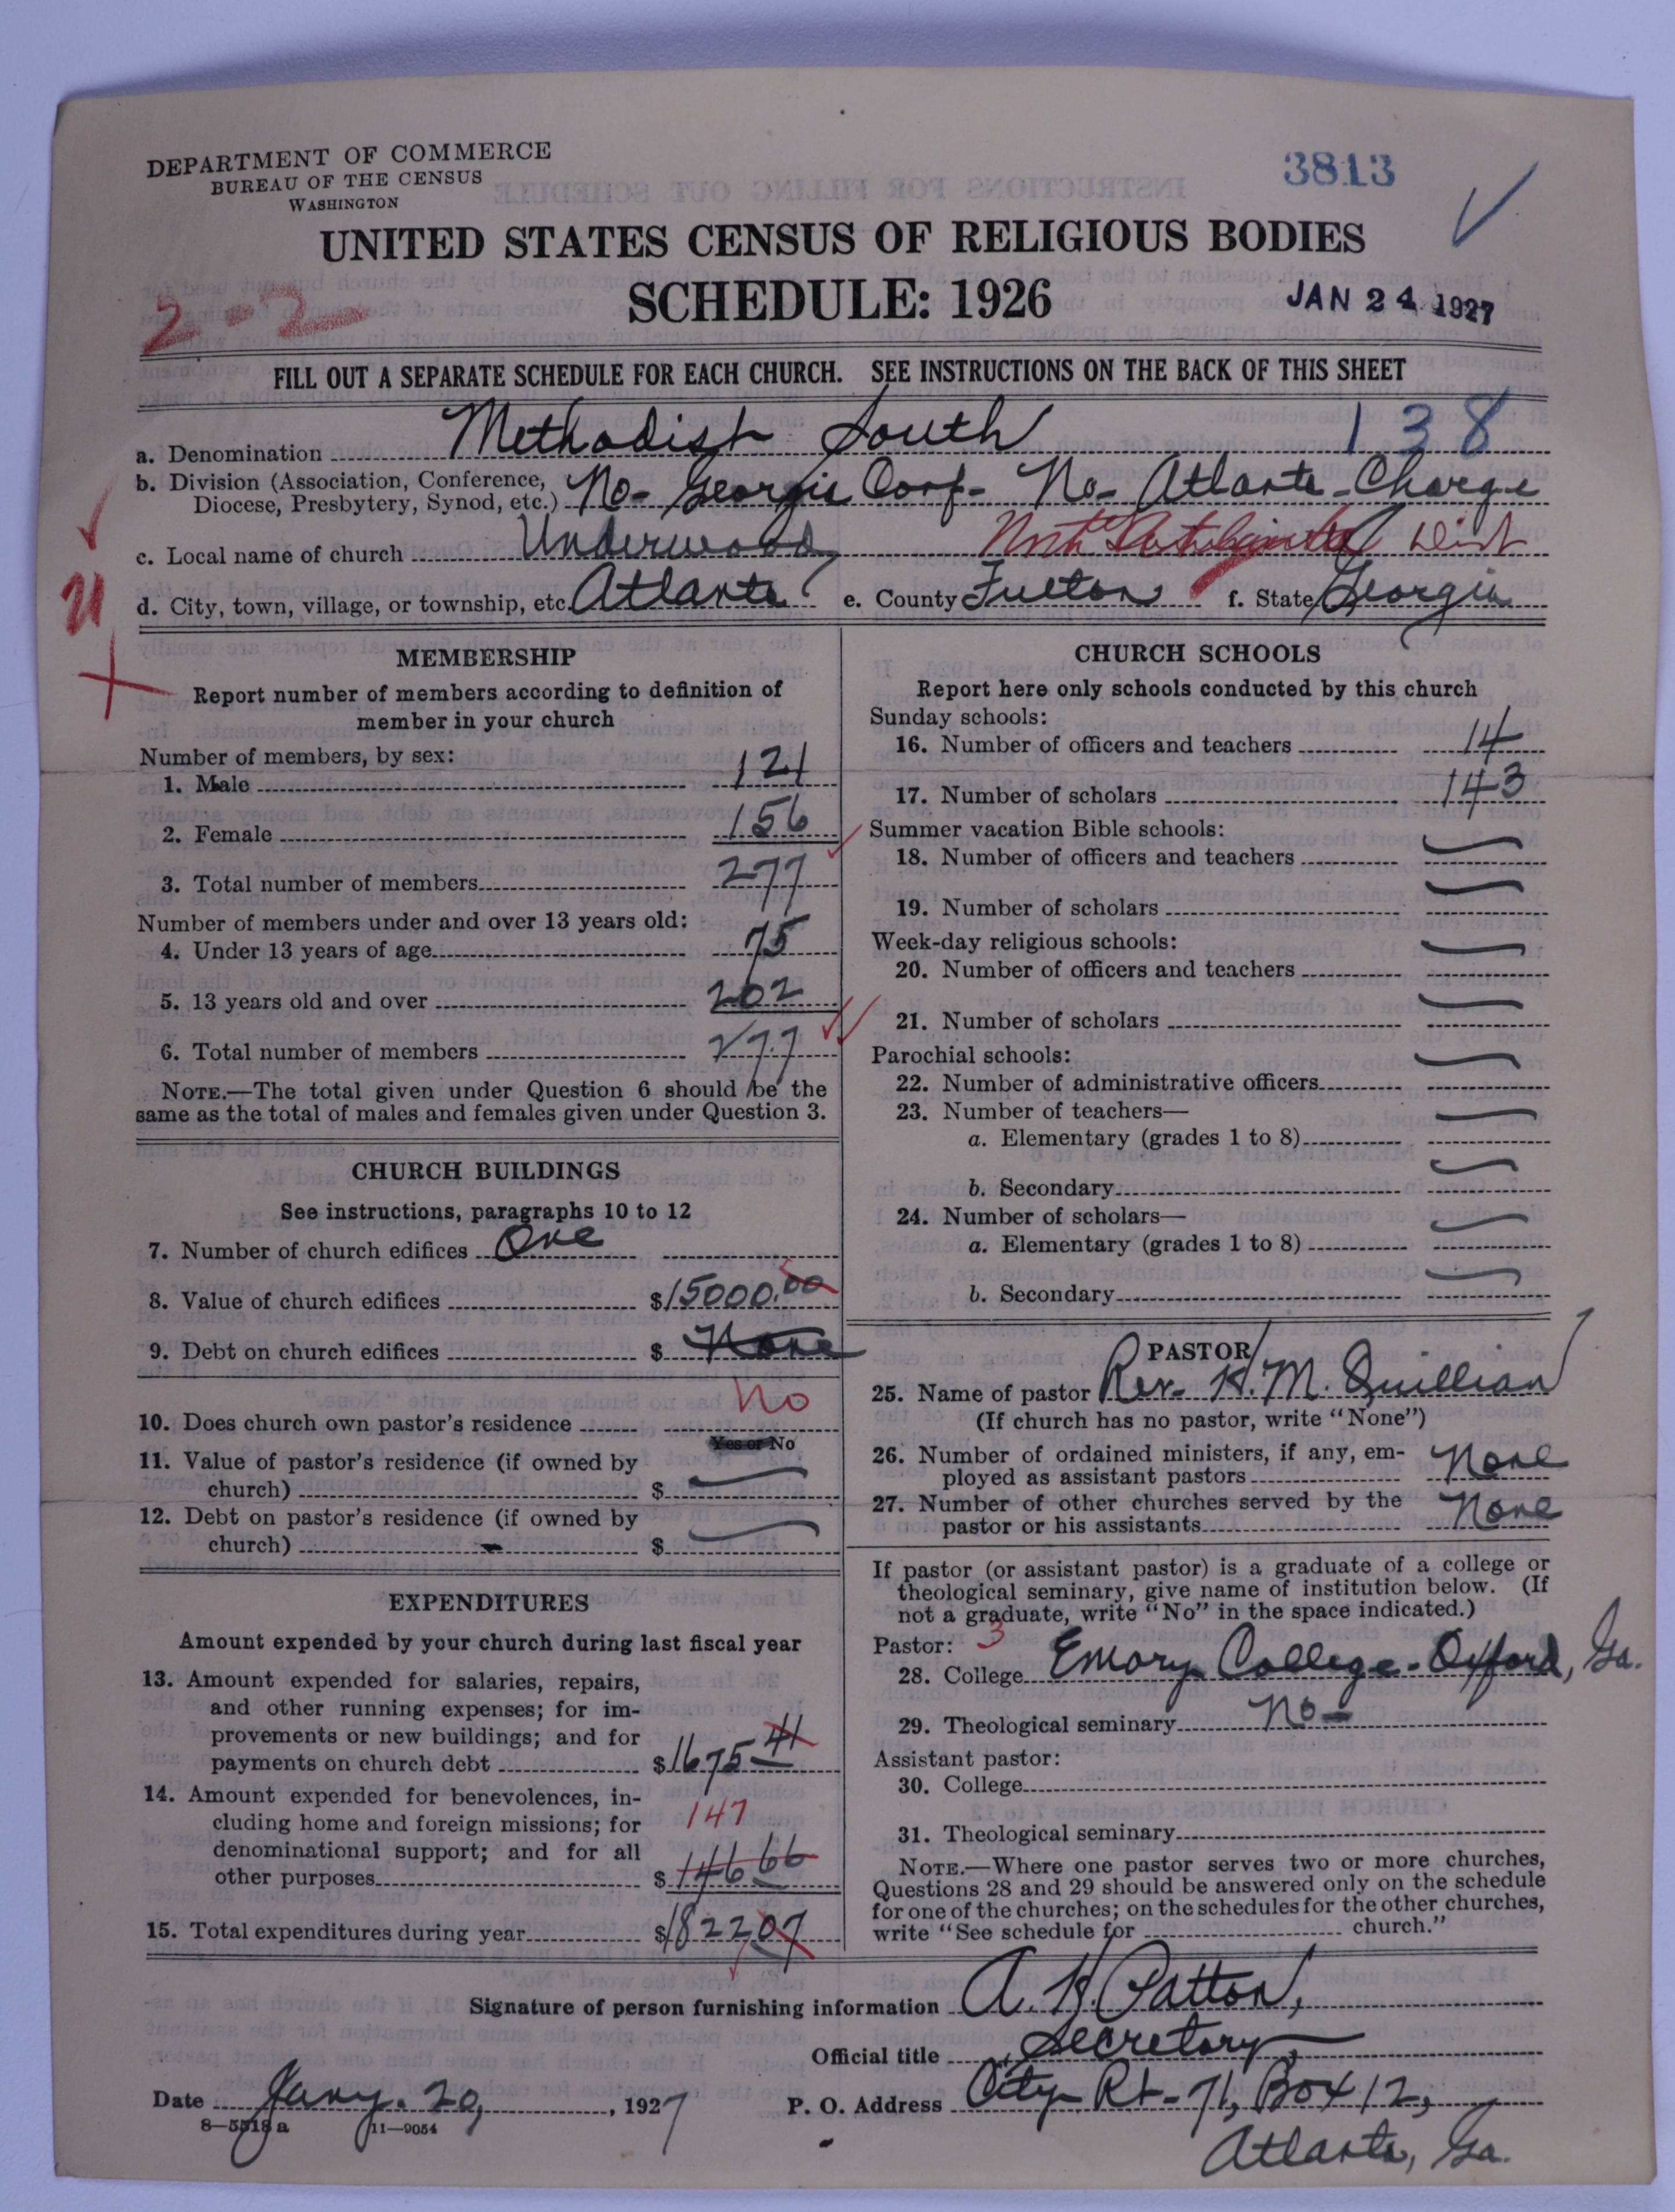 DEPARTMENT OF COMMERCE
BUREAU OF THE CENSUS
WASHINGTON
3813
UNITED STATES CENSUS OF RELIGIOUS BODIES
SCHEDULE: 1926
JAN 24 1927
2-2
FILL OUT A SEPARATE SCHEDULE FOR EACH CHURCH. SEE INSTRUCTIONS ON THE BACK OF THIS SHEET
a. Denomination Methodist South 138
b. Division (Association, Conference, Diocese, Presbytery, Synod, etc.) No- Georgia Conf- No- Atlanta-Charge
c. Local name of church Underwood North Dist
d. City, town, village, or township, etc. Atlanta e. County Fulton f. State Georgia
MEMBERSHIP
Report number of members according to definition of
member in your church
Number of members, by sex:
1. Male 121
2. Female 156
3. Total number of members 277
Number of members under and over 13 years old:
4. Under 13 years of age 75
5. 13 years old and over 202
6. Total number of members 277
NOTE.—The total given under Question 6 should be the
same as the total of males and females given under Question 3.
CHURCH BUILDINGS
See instructions, paragraphs 10 to 12
7. Number of church edifices One
8. Value of church edifices $15000.00
9. Debt on church edifices $ None
10. Does church own pastor's residence No
Yes or No
11. Value of pastor's residence (if owned by
church) $
12. Debt on pastor's residence (if owned by
church) $
EXPENDITURES
Amount expended by your church during last fiscal year
13. Amount expended for salaries, repairs,
and other running expenses; for im-
provements or new buildings; and for
payments on church debt $1675 41
14. Amount expended for benevolences, in-
cluding home and foreign missions; for 147
denominational support; and for all
other purposes $146 66
15. Total expenditures during year $1822 07
CHURCH SCHOOLS
Report here only schools conducted by this church
Sunday schools:
16. Number of officers and teachers 14
17. Number of scholars 143
Summer vacation Bible schools:
18. Number of officers and teachers
19. Number of scholars
Week-day religious schools:
20. Number of officers and teachers
21. Number of scholars
Parochial schools:
22. Number of administrative officers
23. Number of teachers—
a. Elementary (grades 1 to 8)
b. Secondary
24. Number of scholars—
a. Elementary (grades 1 to 8)
b. Secondary
PASTOR
25. Name of pastor Rev. H. M. Quillian
(If church has no pastor, write "None")
26. Number of ordained ministers, if any, em-
ployed as assistant pastors None
27. Number of other churches served by the
pastor or his assistants None
If pastor (or assistant pastor) is a graduate of a college or
theological seminary, give name of institution below. (If
not a graduate, write "No" in the space indicated.)
Pastor: 3
28. College Emory College-Oxford, Ga.
29. Theological seminary No-
Assistant pastor:
30. College
31. Theological seminary
NOTE.—Where one pastor serves two or more churches,
Questions 28 and 29 should be answered only on the schedule
for one of the churches; on the schedules for the other churches,
write "See schedule for church."
Signature of person furnishing information A. H. Patton,
Official title Secretary
Date Jany. 20, 1927 P. O. Address City- Rt- 71, Box 12,
8—5518 a 11—9054
Atlanta, Ga.